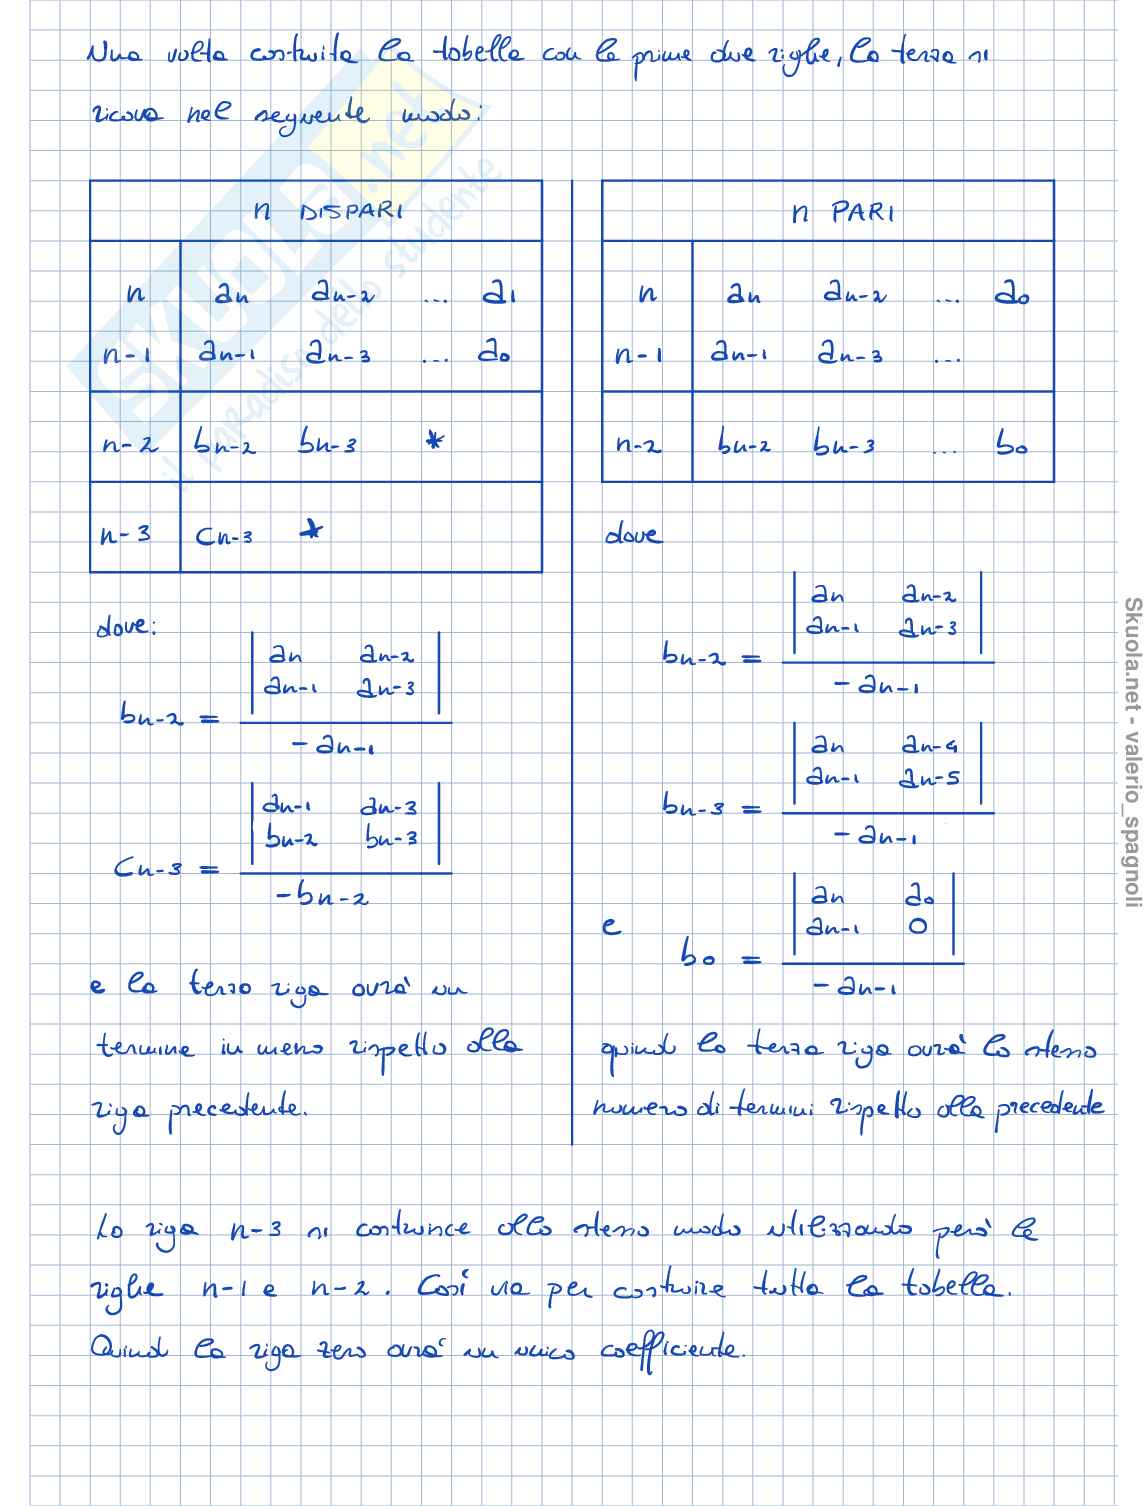 Una volta costruita la tabella con le prime due righe, la terza si
ricava nel seguente modo:
n DISPARI
n an an-2 ... a1
n-1 an-1 an-3 ... a0
n-2 bn-2 bn-3 *
n-3 cn-3 *
dove:
bn-2 = | an an-2 |
| an-1 an-3 |
- an-1
cn-3 = | an-1 an-3 |
| bn-2 bn-3 |
- bn-2
e la terza riga avrà un
termine in meno rispetto alla
riga precedente.
n PARI
n an an-2 ... a0
n-1 an-1 an-3 ...
n-2 bn-2 bn-3 ... b0
dove
bn-2 = | an an-2 |
| an-1 an-3 |
- an-1
bn-3 = | an an-4 |
| an-1 an-5 |
- an-1
e b0 = | an a0 |
| an-1 0 |
- an-1
quindi la terza riga avrà lo stesso
numero di termini rispetto alla precedente
La riga n-3 si costruisce allo stesso modo utilizzando però le
righe n-1 e n-2. Così via per costruire tutta la tabella.
Quindi la riga zero avrà un unico coefficiente.
SKUOLA.net
il paradiso dello studente
Skuola.net - valerio_spagnoli